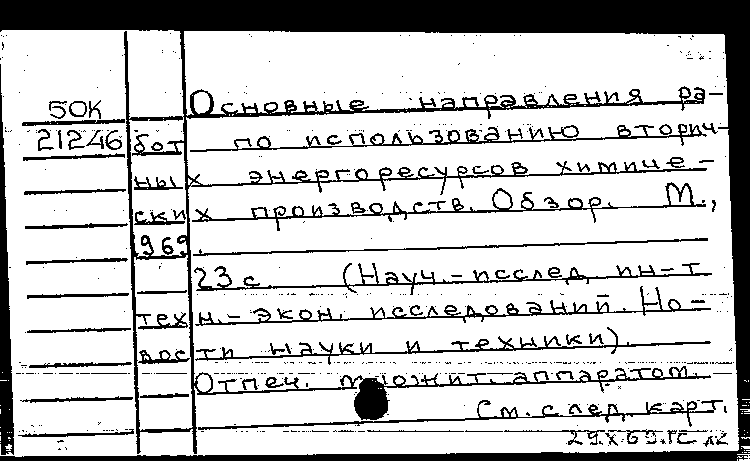 50К Основные направления ра-
21246 бот по использованию вторич-
ных энергоресурсов химиче-
ских производств. Обзор. М.,
1969.
23 с. (Науч.-исслед. ин-т
техн.-экон. исследований. Но-
вости науки и техники).
Отпеч. множит. аппаратом.
См. след. карт.
29.X.69.ГС